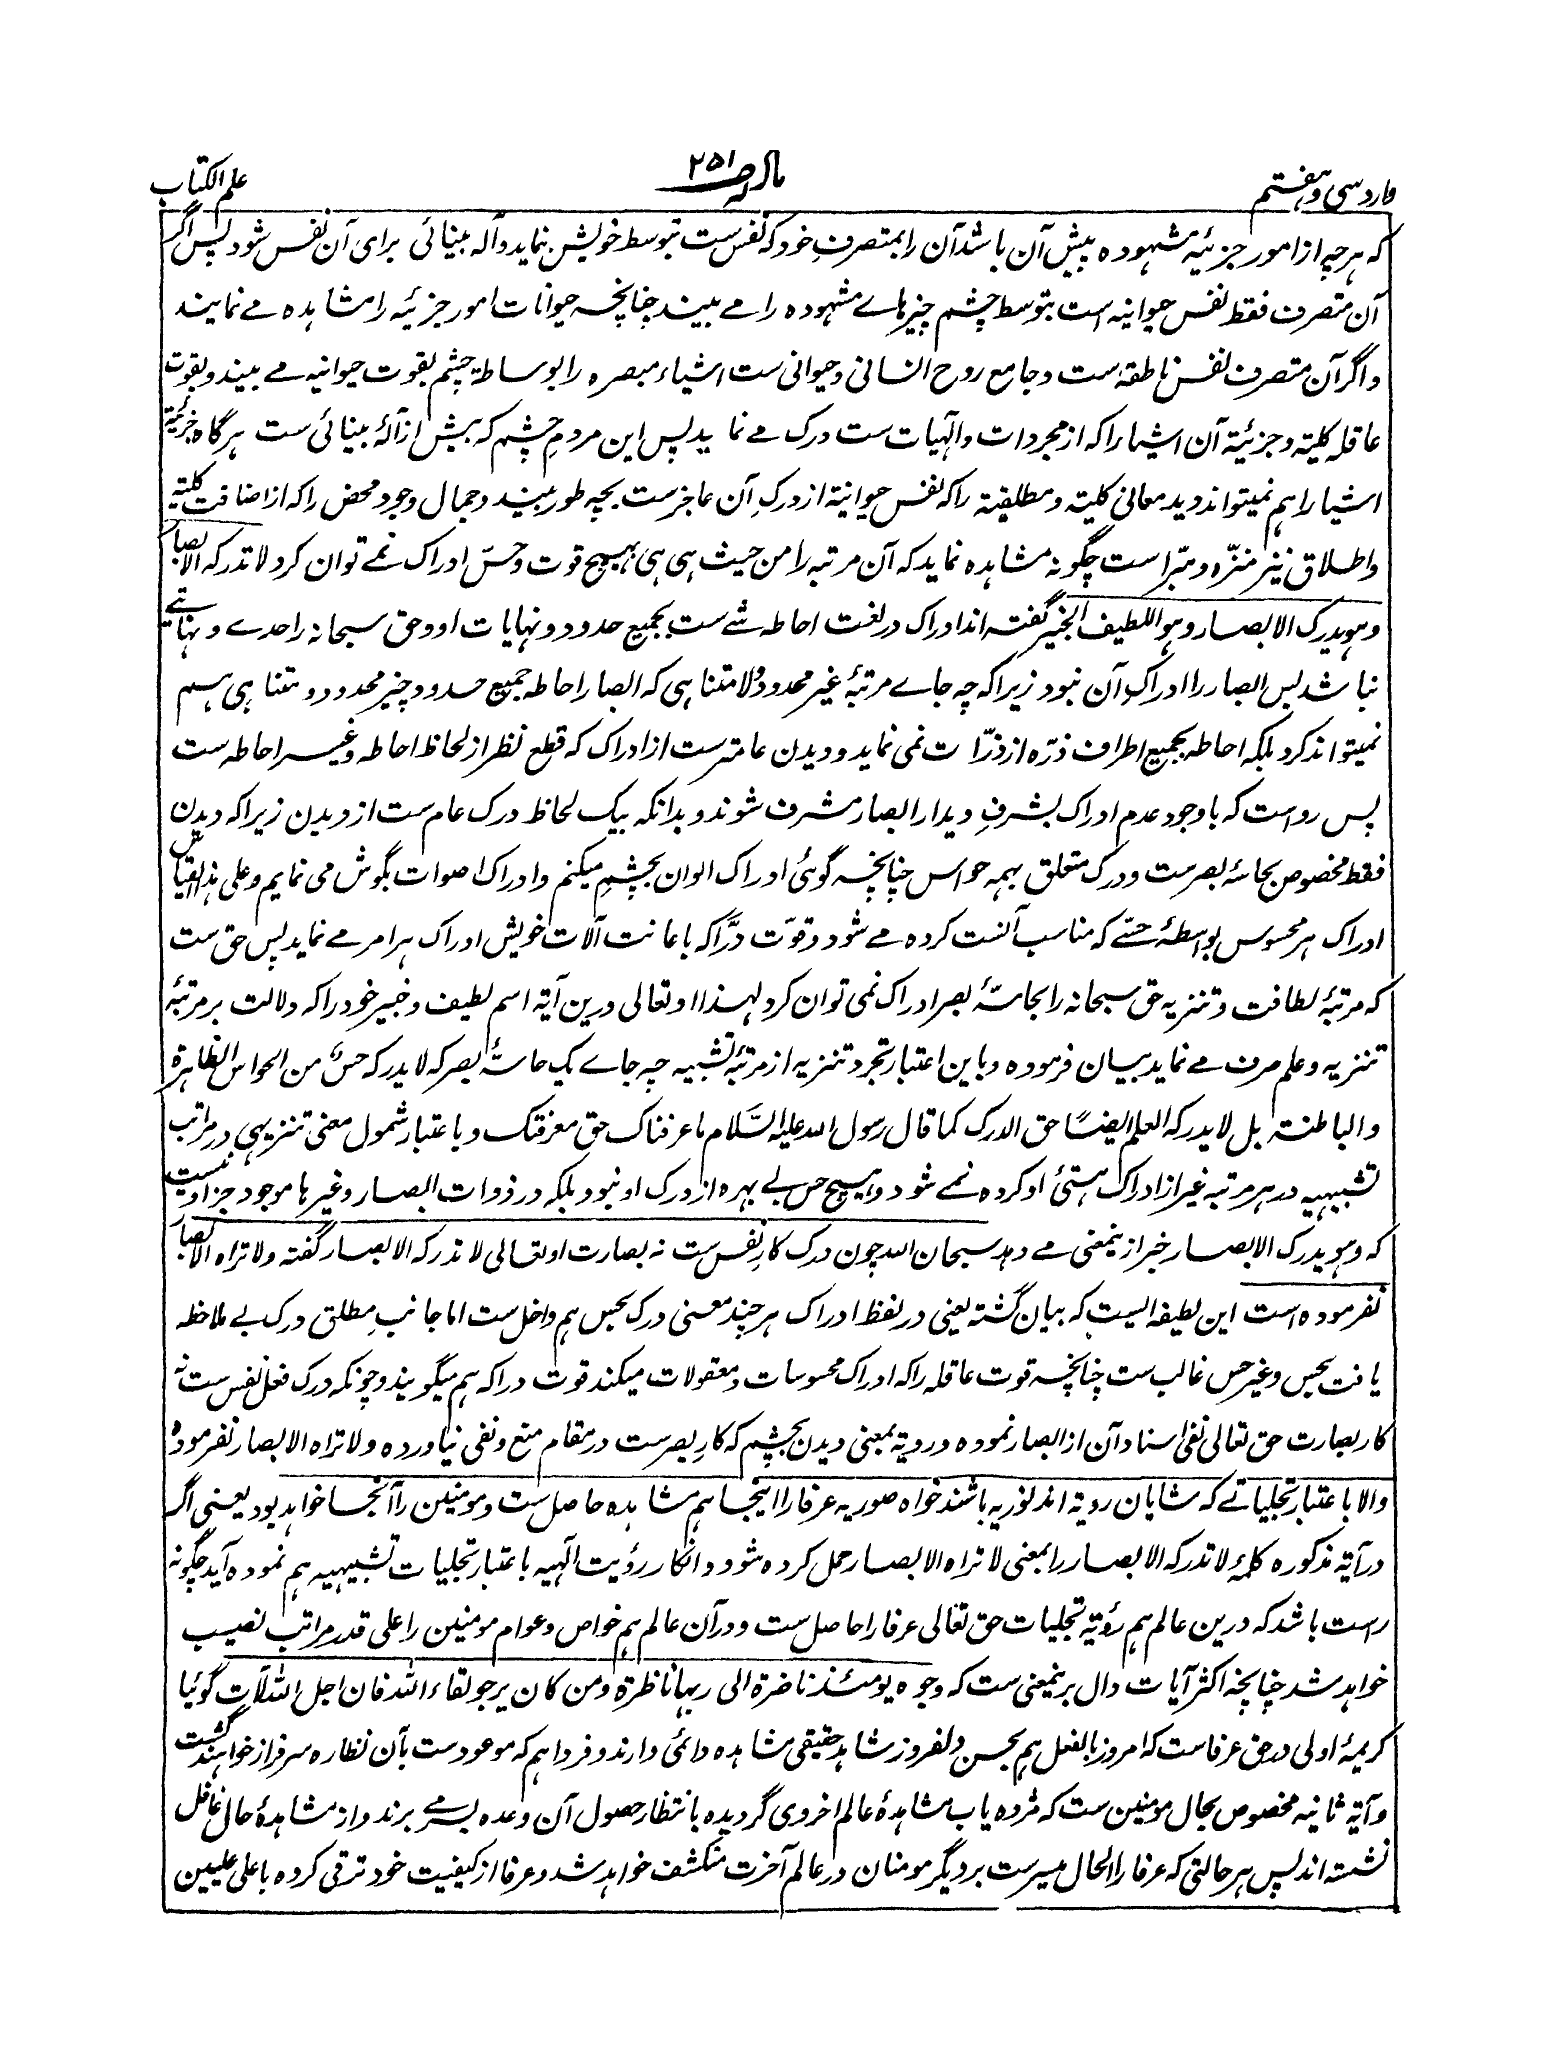 وارد سی و هفتم
۲۵۱
علم الکتاب
که هرچه از امور جزئیه مشهوده پیش آن باشد آن را بمتصرفِ خود که نفس ست بتوسط خویش بنماید و آلهٔ بینائی برای آن نفس شود پس اگر
آن متصرف فقط نفس حیوانیه است بتوسط چشم چیزهاے مشهوده را مے بیند چنانچه حیوانات امور جزئیه را مشاهده مے نمایند
و اگر آن متصرف نفس ناطقه است و جامع روح انسانی و حیوانی ست اشیاء مبصره را بوساطة چشم بقوت حیوانیه مے بیند و بقوت
عاقله کلیته و جزئیة آن اشیا را که از مجردات و الٰهیات ست درک مے نماید پس این مردمِ چشم که بیش از آلهٔ بینائی ست هرگاه جزئیة
اشیا را هم نمیتواند دید معانی کلیته و مطلقیة را که نفس حیوانیة از درکِ آن عاجز ست بچه طور بیند و جمال وجود محض را که از اضافت کلیته
و اطلاق نیز منزّه و مبّرا ست چگونه مشاهده نماید که آن مرتبه را من حیث هی هی بهیچ قوت و حسّ ادراک نمے توان کرد لا تدرکه الابصار
وهو یدرک الابصار وهو اللطیف الخبیر گفته اند ادراک در لغت احاطه شے ست بجمیع حدود و نهایات او و حق سبحانه را حدے و نهایتے
نباشد پس ابصار را ادراکِ آن نبود زیرا که چه جاے مرتبهٔ غیر محدود و لا متناهی که ابصار احاطه جمیع حدود چیز محدود و متناهی هم
نمیتواند کرد بلکه احاطه بجمیع اطراف ذرّه از ذرّات نمی نماید و دیدن عام تر ست از ادراک که قطع نظر از لحاظ احاطه و غیر احاطه ست
پس روا ست که باوجود عدم ادراک بشرفِ دیدار ابصار مشرف شوند و بدانکه بیک لحاظ درک عام ست از دیدن زیرا که دیدن
فقط مخصوص بحاسهٔ بصر ست و درک متعلق بهمه حواس چنانچه گوئی ادراک الوان بچشم میکنم و ادراک اصوات بگوش می نمایم و علی هذا القیاس
ادراک هر محسوس بواسطهٔ حسّے که مناسب آنست کرده مے شود و قوّت درّاکه باعانت آلات خویش ادراک هر امر مے نماید پس حق ست
که مرتبهٔ لطافت و تنزیه حق سبحانه را بحاسّهٔ بصر ادراک نمی توان کرد لهذا او تعالی درین آیة اسم لطیف و خبیر خود را که دلالت بر مرتبهٔ
تنزیه و علم صرف مے نماید بیان فرموده و باین اعتبار تجرد و تنزیه از مرتبهٔ تشبیه چه جاے یک حاسّهٔ بصر که لا یدرکه حسٌ من الحواس الظاهرة
والباطنة بل لا یدرکه العلم ایضًا حق الدرک کما قال رسول الله علیه السَّلام ما عرفناک حق معرفتک و باعتبار شمول معنی تنزیهی در مراتب
تشبیهیه در هر مرتبه غیر از ادراک هستیٔ او کرده نمے شود و هیچ حس بے بهره از درک او نبود بلکه در ذوات ابصار و غیرها موجود جز او نیست
که وهو یدرک الابصار خبر ازینمعنی مے دهد سبحان الله چون درک کارِ نفس ست نه بصارت او تعالی لا تدرکه الابصار گفته و لا تراه الابصار
نفرموده است این لطیفه ایست که بیان گشته یعنی در لفظ ادراک هر چند معنی درک بحس هم داخل ست اما جانبِ مطلق درک بے ملاحظه
یافت بحس و غیر حس غالب ست چنانچه قوت عاقله را که ادراک محسوسات و معقولات میکند قوت دراکه هم میگویند و چونکه درک فعل نفس ست نه
کار بصارت حق تعالی نفی اسناد آن از ابصار نموده و رویة بمعنی دیدن بچشم که کارِ بصر ست در مقام منع و نفی نیاورده و لا تراه الابصار نفرموده
والا باعتبار تجلیاتے که شایان رویة اند نوریه باشند خواه صوریه عرفا را اینجا هم مشاهده حاصل ست و مومنین را آنجا خواهد بود یعنی اگر
در آیة مذکوره کلمهٔ لا تدرکه الابصار را بمعنی لا تراه الابصار حمل کرده شود و انکار رؤیت الٰهیه باعتبار تجلیات تشبیهیه هم نموده آید چگونه
راست باشد که درین عالم هم رؤیة تجلیات حق تعالی عرفا را حاصل ست و در آن عالم هم خواص و عوام مومنین را علی قدر مراتب نصیب
خواهد شد چنانچه اکثر آیات دال برینمعنی ست که وجوه یومئذ ناضرة الی ربها ناظرة و من کان یرجو لقاء الله فان اجل الله لآت گویا
کریمهٔ اولی در حق عرفاست که امروز بالفعل هم بحسن دلفروز شاهد حقیقی مشاهده دائمی دارند و فردا هم که موعود ست بآن نظاره سرفراز خواهند گشت
و آیة ثانیه مخصوص بحال مومنین ست که مژده یاب مشاهدهٔ عالم اخروی گردیده بانتظار حصول آن وعده بسر مے برند و از مشاهدهٔ حال غافل
نشسته اند پس هر حالتی که عرفا را الحال میسر ست بر دیگر مومنان در عالم آخرت منکشف خواهد شد و عرفا از کیفیت خود ترقی کرده باعلی علیین